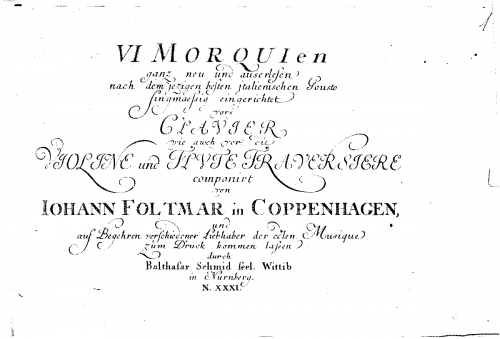 1
VI MORQUIen
ganz neu und auserlesen
nach dem jezigen besten jtalienischen Gousto
singmaesig eingerichtet
vors
CLAVIER,
wie auch vor die
VIOLINE und FLUTE TRAVERSIERE
componirt
von
IOHANN FOLTMAR in COPPENHAGEN,
und
auf Begehren verschiedener Liebhaber der edlen Musique
zum Druck kommen lassen
durch
Balthasar Schmid seel. Wittib
in Nürnberg.
N. XXXI.